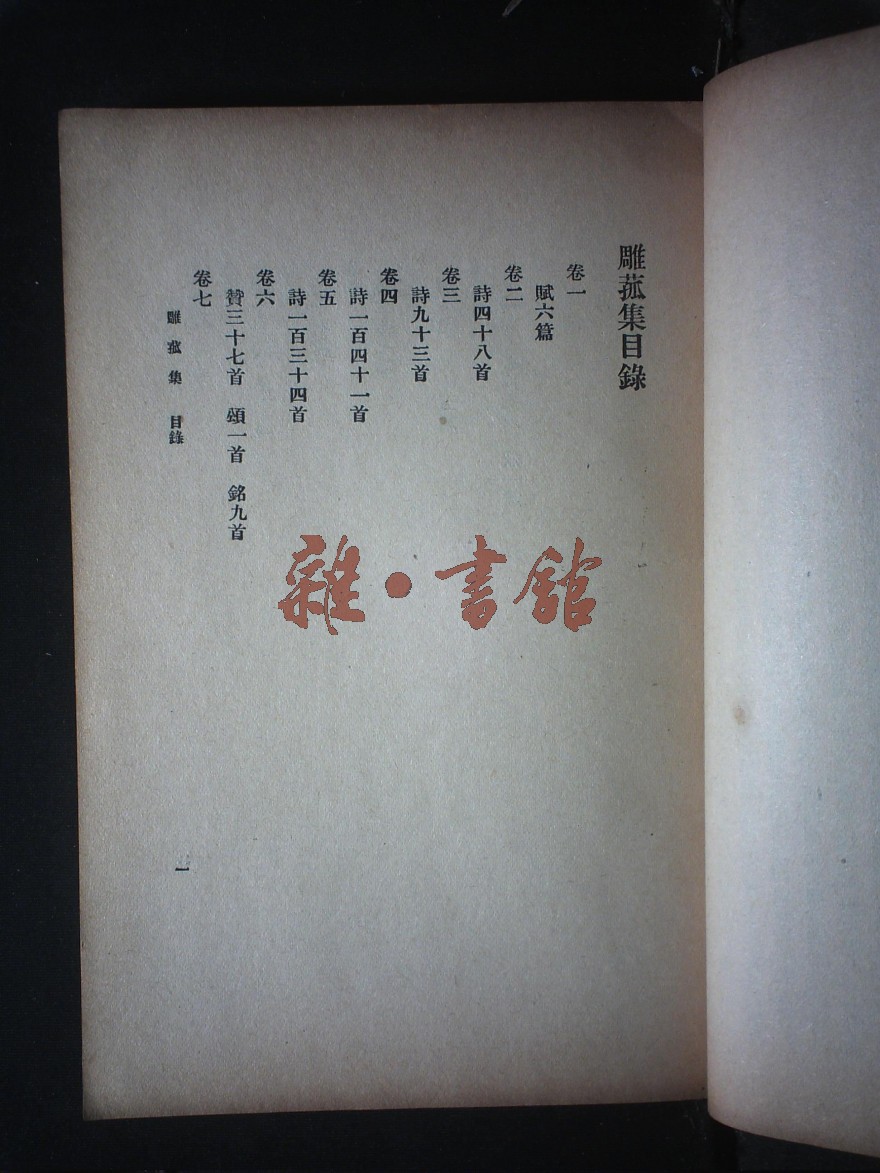 雕菰集目錄
卷一
賦六篇
卷二
詩四十八首
卷三
詩九十三首
卷四
詩一百四十一首
卷五
詩一百三十四首
卷六
贊三十七首 頌一首 銘九首
卷七
雕菰集 目錄
一
雜·書館